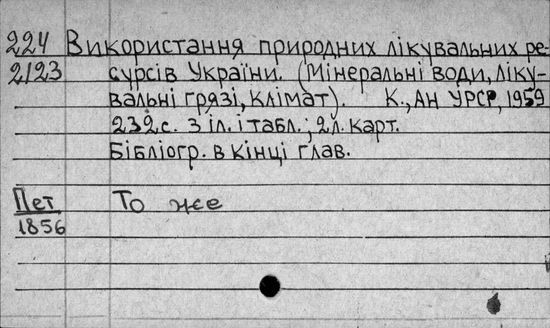 224 Використання природних лікувальних ре-
2123 сурсів України. (Мінеральні води, ліку-
вальні грязі, клімат). К., АН УРСР, 1959
232 с. з іл. і табл.; 2 л. карт.
Бібліогр. в кінці глав.
Пет То же
1856